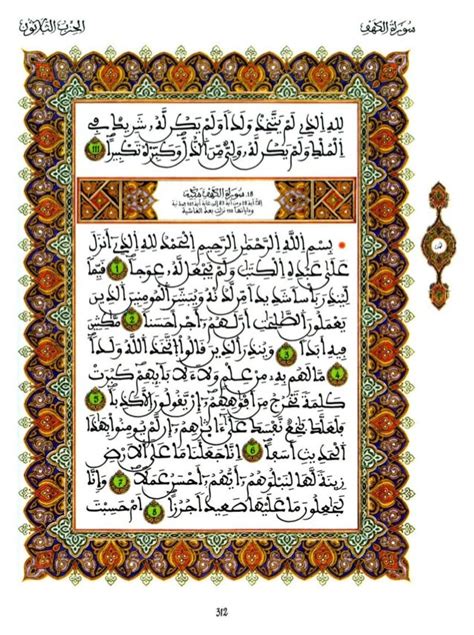 سورة الكهف
الحزب الثلاثون
لِلهِ الذِي لَمْ يَتَّخِذْ وَلَداً وَلَمْ يَكُن لَّهُ شَرِيكٌ فِي
الْمُلْكِ وَلَمْ يَكُن لَّهُ وَلِيٌّ مِّنَ الذُّلِّ وَكَبِّرْهُ تَكْبِيراً 111
18. سورة الكهف مكية
وآياتها 110 نزلت بعد الغاشية
بِسْمِ اللَّهِ الرَّحْمَٰنِ الرَّحِيمِ الْحَمْدُ لِلهِ الذِي أَنزَلَ
عَلَىٰ عَبْدِهِ الْكِتَٰبَ وَلَمْ يَجْعَل لَّهُ عِوَجاً 1 قَيِّماً
لِّيُنذِرَ بَأْساً شَدِيداً مِّن لَّدُنْهُ وَيُبَشِّرَ الْمُومِنِينَ الذِينَ
يَعْمَلُونَ الصَّٰلِحَٰتِ أَنَّ لَهُمْ أَجْراً حَسَناً 2 مَّٰكِثِينَ
فِيهِ أَبَداً 3 وَيُنذِرَ الذِينَ قَالُوا اتَّخَذَ اللَّهُ وَلَداً
4 مَّا لَهُم بِهِ مِنْ عِلْمٍ وَلَا لِأَبَآئِهِمْ كَبُرَتْ
كَلِمَةً تَخْرُجُ مِنْ أَفْوَٰهِهِمْ إِنْ يَّقُولُونَ إِلَّا كَذِباً 5
فَلَعَلَّكَ بَٰخِعٌ نَّفْسَكَ عَلَىٰ ءَاثَٰرِهِمْ إِن لَّمْ يُومِنُوا بِهَٰذَا
الْحَدِيثِ أَسَفاً 6 إِنَّا جَعَلْنَا مَا عَلَى الْأَرْضِ
زِينَةً لَّهَا لِنَبْلُوَهُمْ أَيُّهُمْ أَحْسَنُ عَمَلًا 7 وَإِنَّا
لَجَٰعِلُونَ مَا عَلَيْهَا صَعِيداً جُرُزاً 8 أَمْ حَسِبْتَ
ثمن
312